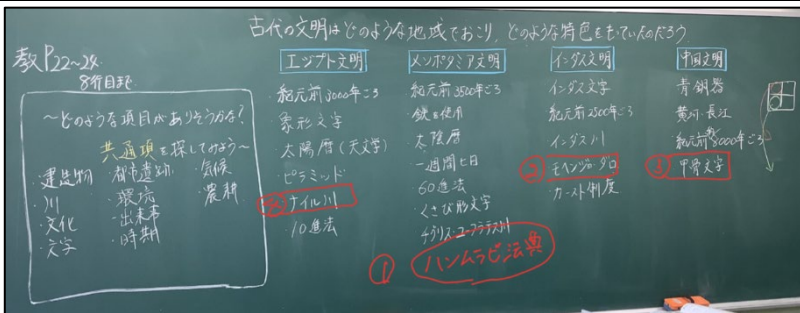 古代の文明はどのような地域でおこり、どのような特色をもっていたのだろう
教P22〜24
8行目まで
〜どのような項目がありそうかな？
共通項を探してみよう〜
・建造物
・川
・文化
・文字
・都市遺跡
・環境
・出来事
・時期
・気候
・農耕
エジプト文明
・紀元前3000年ごろ
・象形文字
・太陽暦(天文学)
・ピラミッド
・ナイル川
・10進法
メソポタミア文明
紀元前3500年ごろ
・鉄を使用
・太陰暦
・一週間七日
・60進法
・くさび形文字
・チグリス・ユーフラテス川
① ハンムラビ法典
インダス文明
・インダス文字
・紀元前2500年ごろ
・インダス川
② モヘンジョ・ダロ
・カースト制度
中国文明
・青銅器
・黄河・長江
・紀元前5000年ごろ
③ 甲骨文字